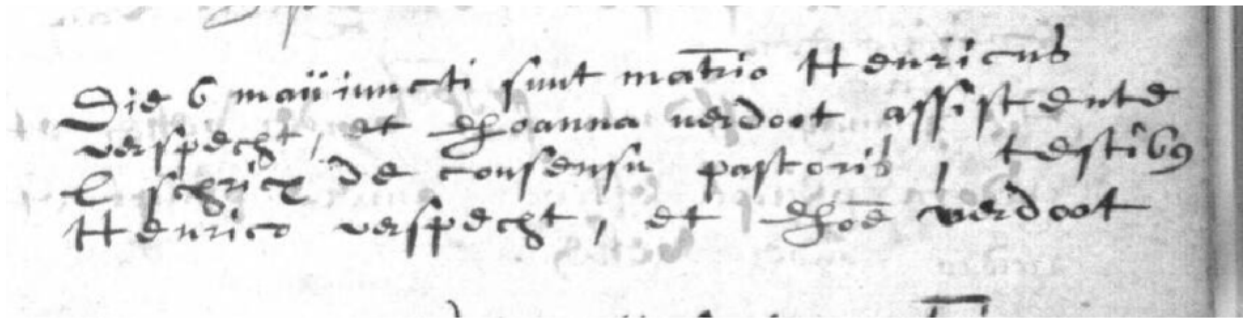 Die 6 maii iuncti sunt matrio Henricus
verspecht, et Jhoanna verdoot assistente
L schricx de consensu pastoris, testibus
Henrico verspecht, et Jhoē verdoot